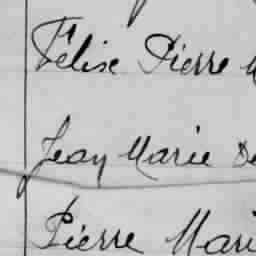 Félise Pierre M
Jean Marie De
Pierre Mari